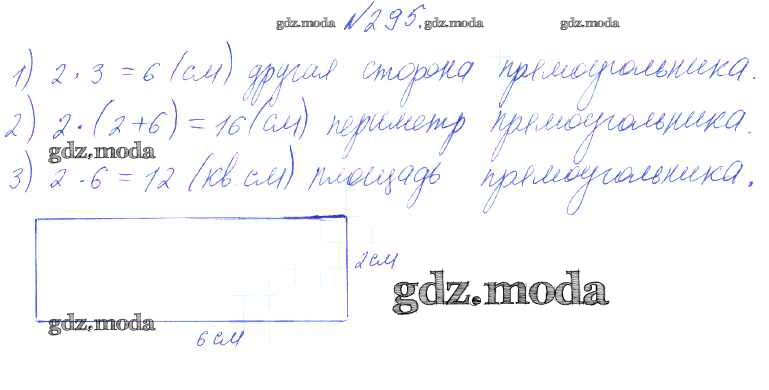 №295.
gdz.moda gdz.moda gdz.moda
1) 2 · 3 = 6 (см) другая сторона прямоугольника.
2) 2 · (2+6) = 16 (см) периметр прямоугольника.
gdz.moda
3) 2 · 6 = 12 (кв.см) площадь прямоугольника.
2 см
gdz.moda
gdz.moda
6 см